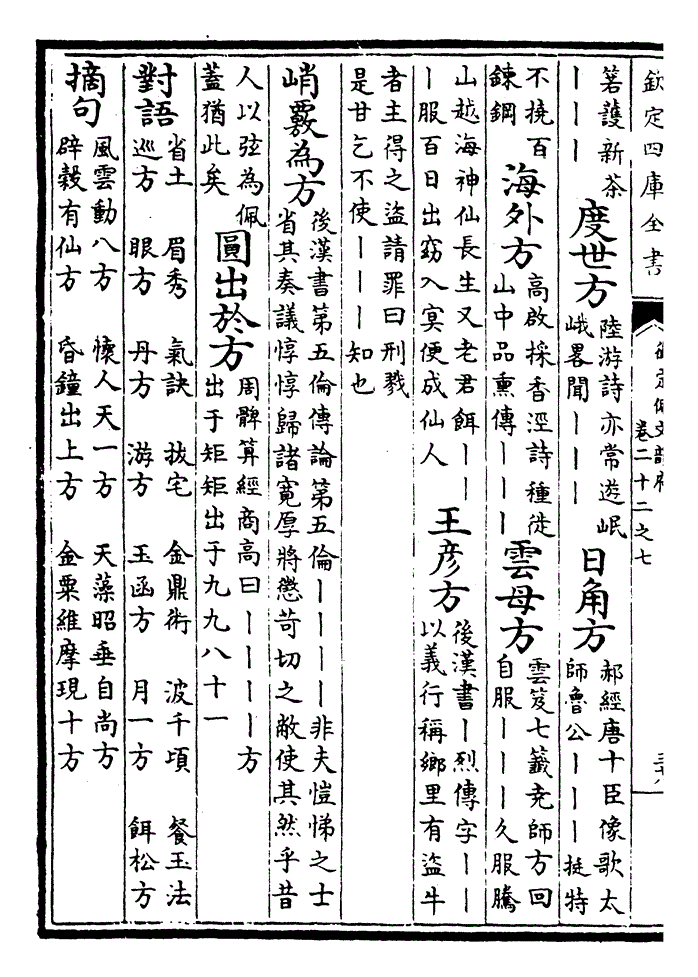 欽定四庫全書
御定佩文韻府
卷二十二之七
三十八
箬護新茶
｜｜｜
度世方
陸游詩亦常遊岷
峨畧聞｜｜｜
日角方
郝經唐十臣像歌太
師魯公｜｜｜挺特
不撓百
鍊鋼
海外方
高啟採香涇詩種徙
山中品熏傳｜｜｜
雲母方
雲笈七籤尭師方回
自服｜｜｜久服騰
山越海神仙長生又老君餌｜｜
｜服百日出窈入㝠便成仙人
王彦方
後漢書｜烈傳字｜｜
以義行稱鄉里有盜牛
者主得之盜請罪曰刑戮
是甘乞不使｜｜｜知也
峭覈為方
後漢書第五倫傳論第五倫｜｜｜｜非夫愷悌之士
省其奏議惇惇歸諸寛厚將懲苛切之敝使其然乎昔
人以弦為佩
蓋猶此矣
圓出於方
周髀算經商高曰｜｜｜｜方
出于矩矩出于九九八十一
對語
省土 眉秀 氣訣 拔宅 金鼎術 波千頃 餐玉法
巡方 眼方 丹方 游方 玉函方 月一方 餌松方
摘句
風雲動八方 懷人天一方 天藻昭垂自尚方
辟穀有仙方 昏鐘出上方 金粟維摩現十方